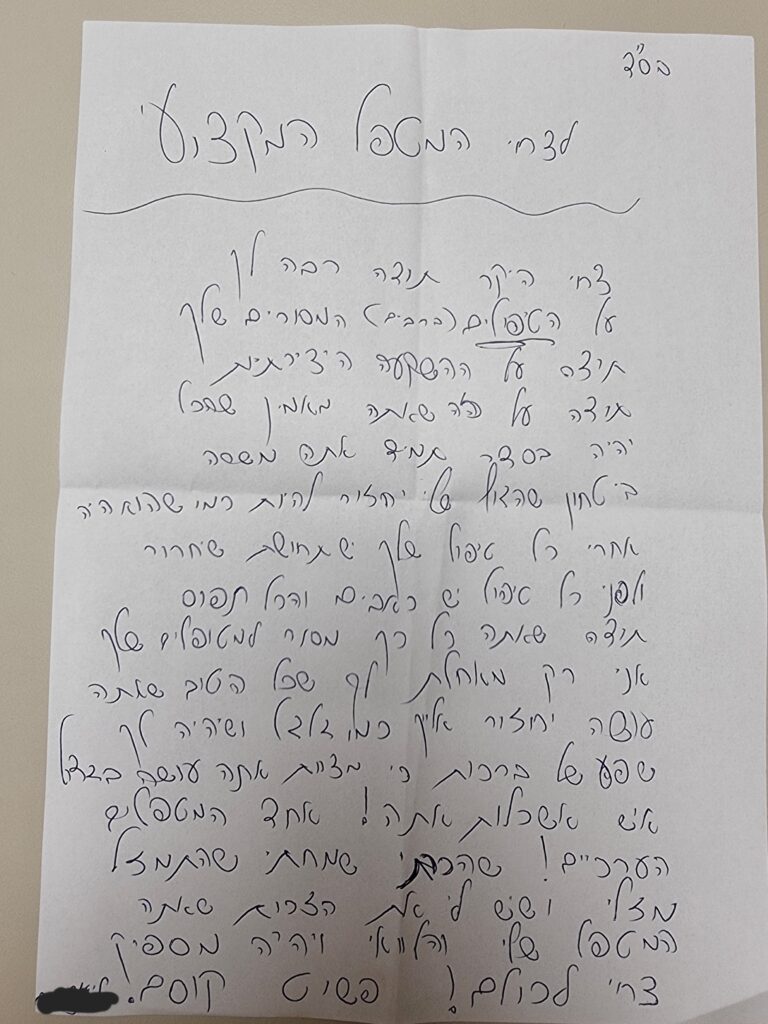 בס"ד
לצחי המטפל המקצועי
צחי היקר תודה רבה לך
על הטיפולים (ברבים) המסורים שלך
תודה על ההשקעה היצירתיות
תודה על זה שאתה מאמין שהכל
יהיה בסדר תמיד אתה משרה
ביטחון שהגוף שלי יחזור להיות כמו שהוא היה
אחרי כל טיפול שלך יש תחושת שיחרור
ולפני כל טיפול יש כאבים והכל תפוס
תודה שאתה כל כך מסור למטופלים שלך
אני רק מאחלת לך שכל הטוב שאתה
עושה יחזור אליך כמו גלגל ושיהיה לך
שפע של ברכות כי מצוות אתה עושה בגדול
איש אשכולות אתה! אחד המטפלים
הערכיים! שהכרתי שמחתי שהתמזל
מזלי ושיש לי את הזכות שאתה
המטפל שלי והלוואי ויהיה מספיק
צחי לכולם! פשוט קוסם!